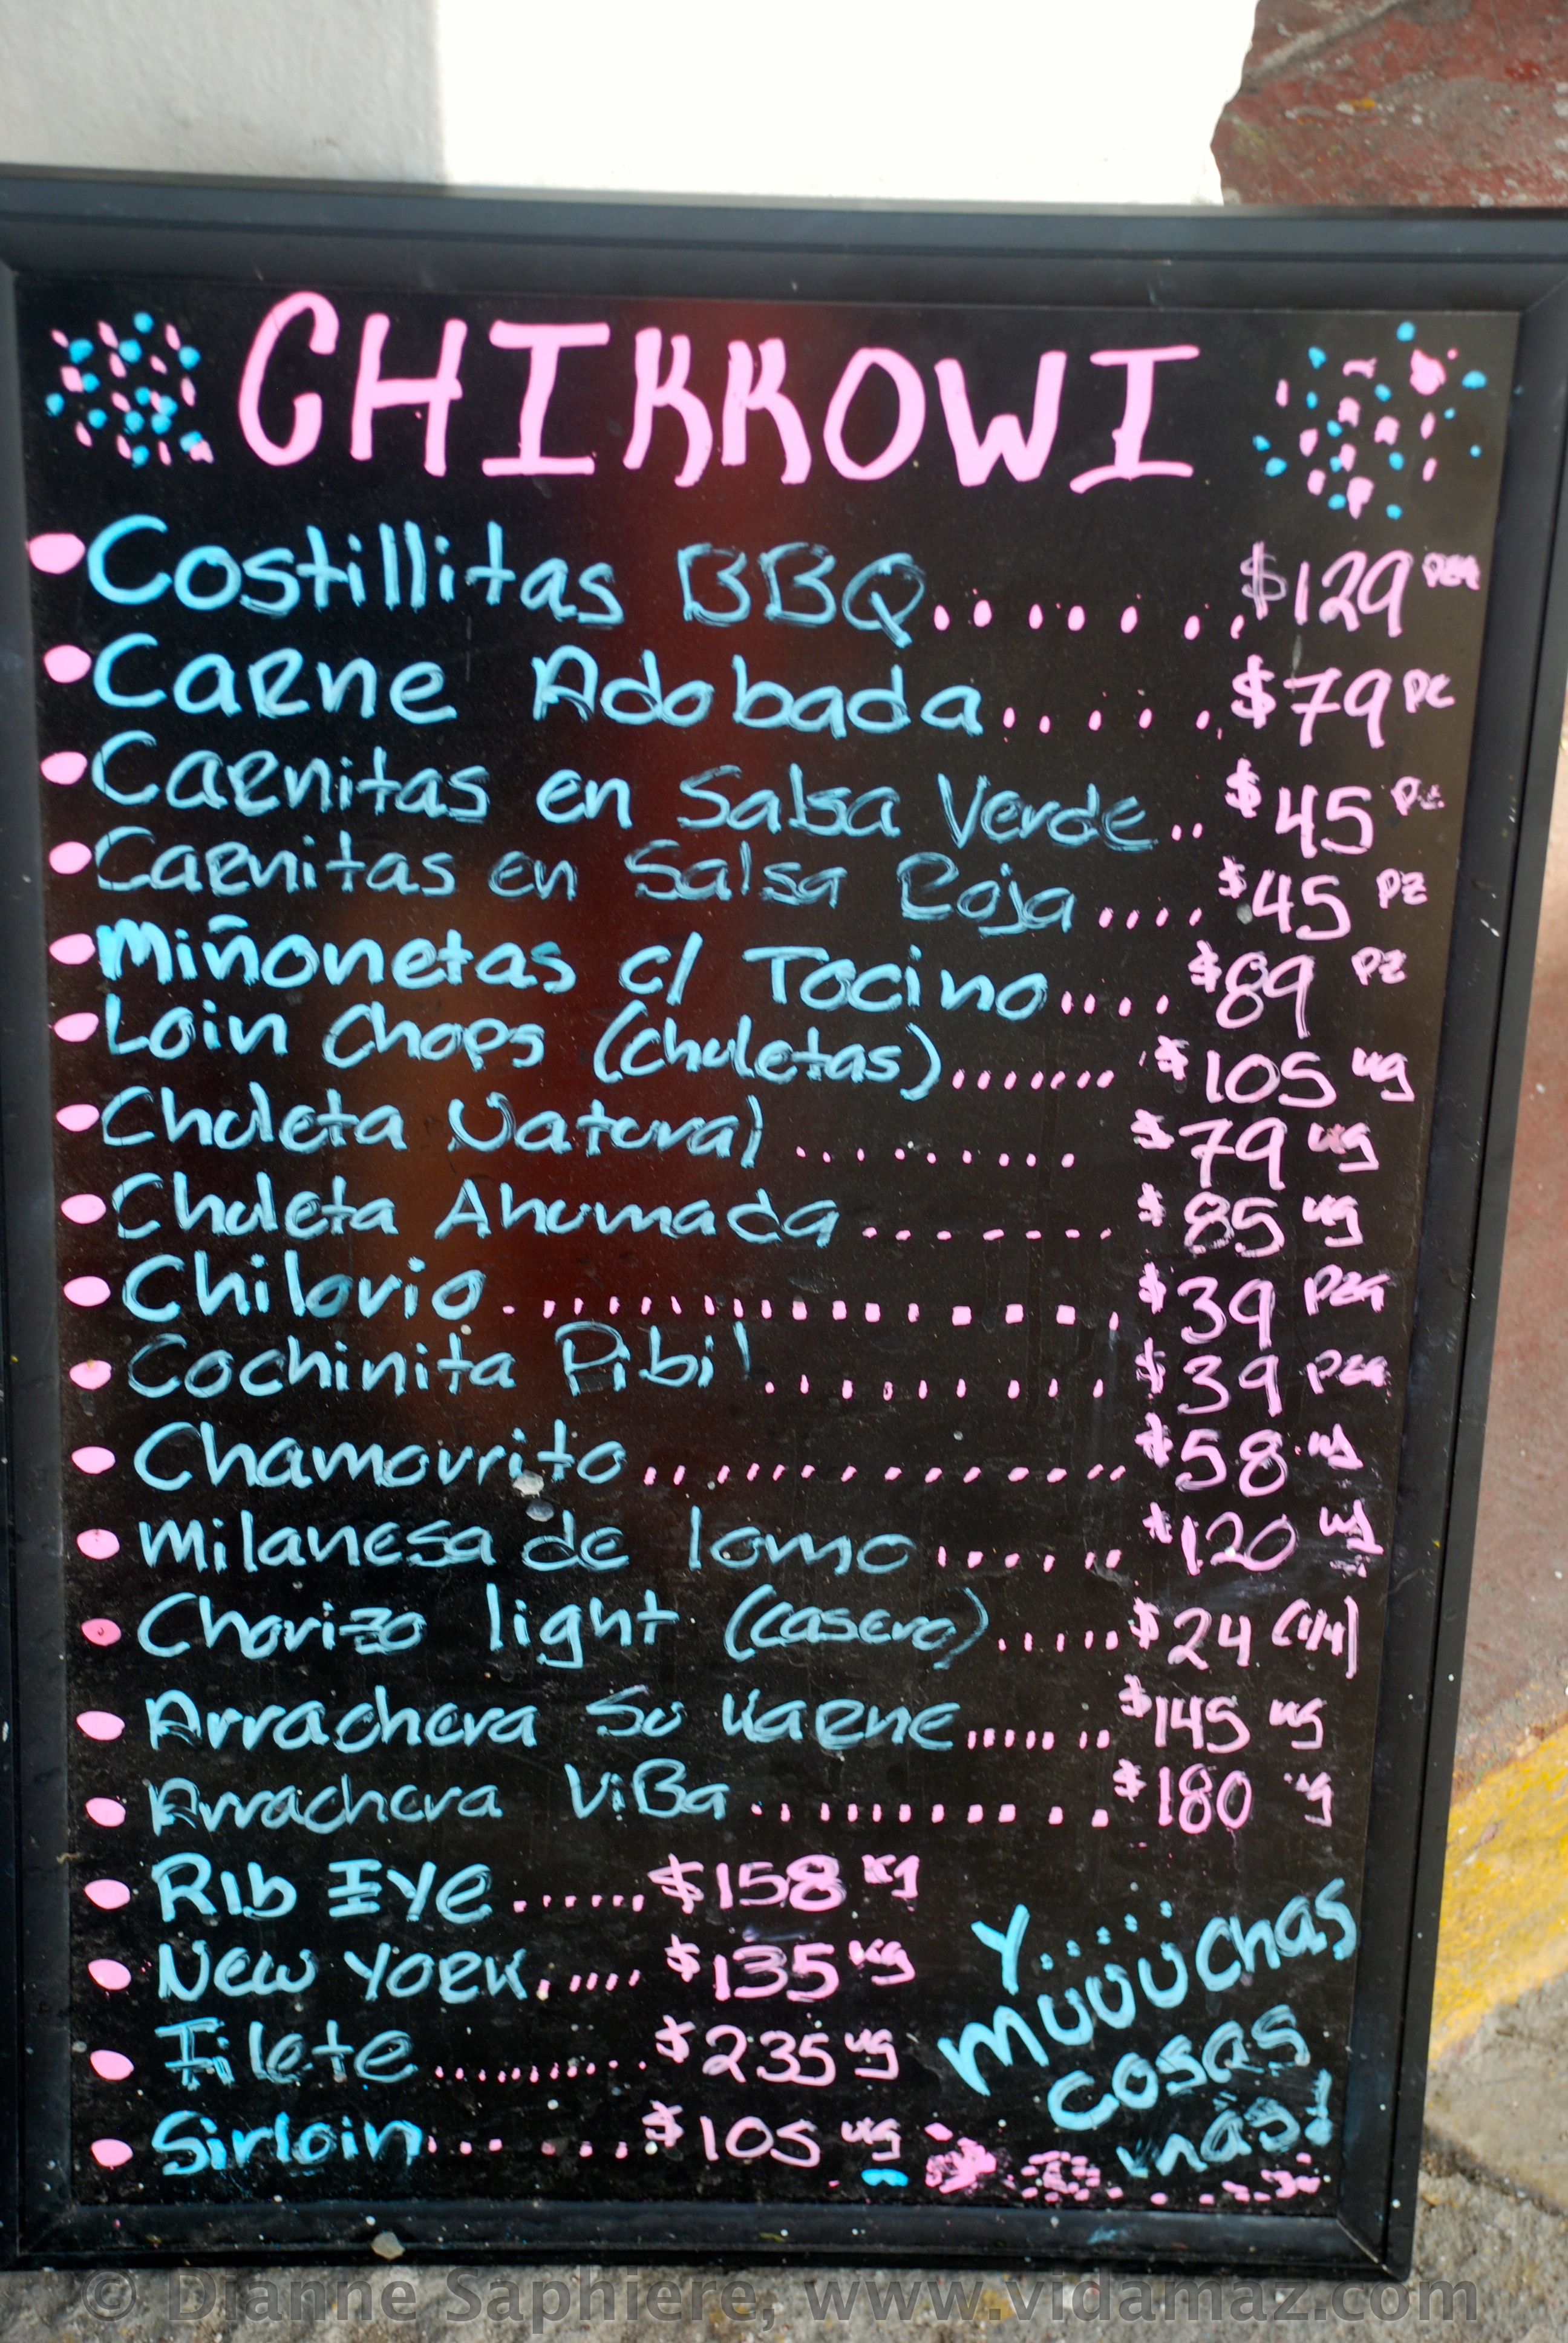 CHIKKOWI
Costillitas BBQ.......$129 pza
Carne Adobada.....$79 pz
Carnitas en Salsa Verde..$45 pz
Carnitas en Salsa Roja....$45 pz
Miñonetas c/ Tocino....$89 pz
Loin Chops (chuletas).......$105 kg
Chuleta Natural.........$79 kg
Chuleta Ahumada.......$85 kg
Chilorio...................$39 pza
Cochinita Pibil.........$39 pza
Chamorrito..............$58 kg
Milanesa de lomo......$120 kg
Chorizo light (casero).....$24 (1/4)
Arrachera Su Karne......$145 kg
Arrachera ViBa...........$180 kg
Rib Eye......$158 kg
New York.....$135 kg
Filete..........$235 kg
Sirloin.......$105 kg
Y...
muuuuchas
cosas
más!
© Dianne Saphiere, www.vidamaz.com